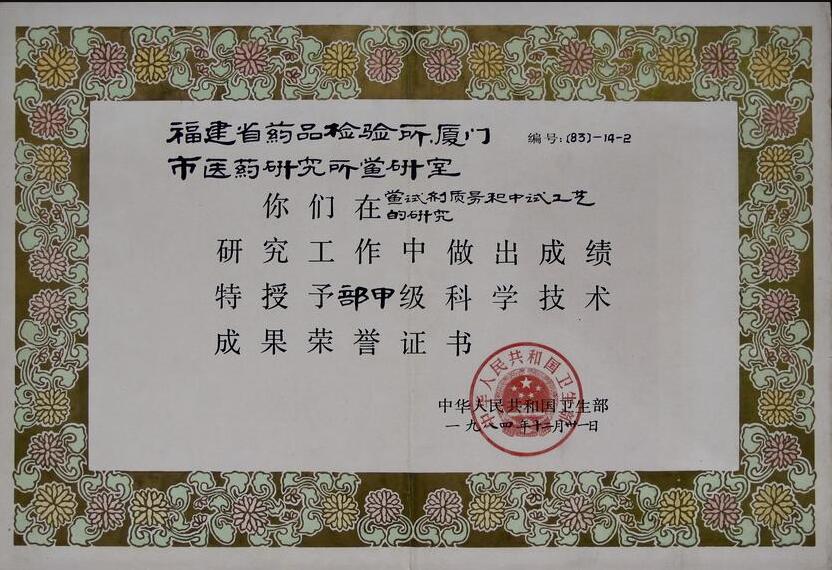 福建省药品检验所、厦门
编号:(83)-14-2
市医药研究所鲎研室
你们在鲎试剂质量和中试工艺
的研究
研究工作中做出成绩
特授予部甲级科学技术
成果荣誉证书
中华人民共和国卫生部
中华人民共和国卫生部
一九八四年十二月卅一日